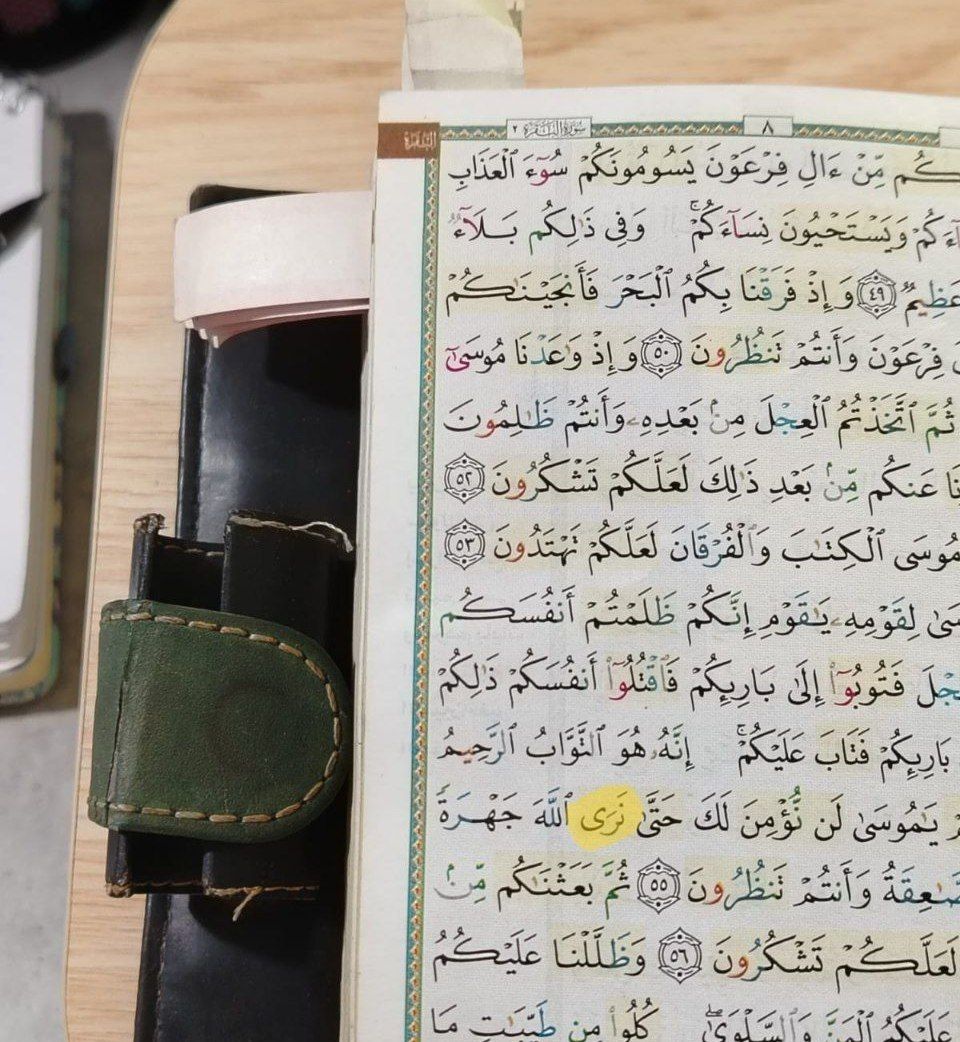 البقرة
سورة البقرة ٢
٨
كُم مِّنْ ءَالِ فِرْعَوْنَ يَسُومُونَكُمْ سُوٓءَ ٱلْعَذَابِ
وَيَسْتَحْيُونَ نِسَآءَكُمْ ۚ وَفِى ذَٰلِكُم بَلَآءٌ
عَظِيمٌ ٤٩ وَإِذْ فَرَقْنَا بِكُمُ ٱلْبَحْرَ فَأَنجَيْنَٰكُمْ
فِرْعَوْنَ وَأَنتُمْ تَنظُرُونَ ٥٠ وَإِذْ وَٰعَدْنَا مُوسَىٰٓ
ثُمَّ ٱتَّخَذْتُمُ ٱلْعِجْلَ مِنۢ بَعْدِهِۦ وَأَنتُمْ ظَٰلِمُونَ
عَنكُم مِّنۢ بَعْدِ ذَٰلِكَ لَعَلَّكُمْ تَشْكُرُونَ ٥٢
مُوسَى ٱلْكِتَٰبَ وَٱلْفُرْقَانَ لَعَلَّكُمْ تَهْتَدُونَ ٥٣
لِقَوْمِهِۦ يَٰقَوْمِ إِنَّكُمْ ظَلَمْتُمْ أَنفُسَكُم
فَتُوبُوٓا۟ إِلَىٰ بَارِئِكُمْ فَٱقْتُلُوٓا۟ أَنفُسَكُمْ ذَٰلِكُمْ
بَارِئِكُمْ فَتَابَ عَلَيْكُمْ ۚ إِنَّهُۥ هُوَ ٱلتَّوَّابُ ٱلرَّحِيمُ
يَٰمُوسَىٰ لَن نُّؤْمِنَ لَكَ حَتَّىٰ نَرَى ٱللَّهَ جَهْرَةً
وَأَنتُمْ تَنظُرُونَ ٥٥ ثُمَّ بَعَثْنَٰكُم مِّنۢ
لَعَلَّكُمْ تَشْكُرُونَ ٥٦ وَظَلَّلْنَا عَلَيْكُمُ
عَلَيْكُمُ ٱلْمَنَّ وَٱلسَّلْوَىٰ ۖ كُلُوا۟ مِن طَيِّبَٰتِ مَا